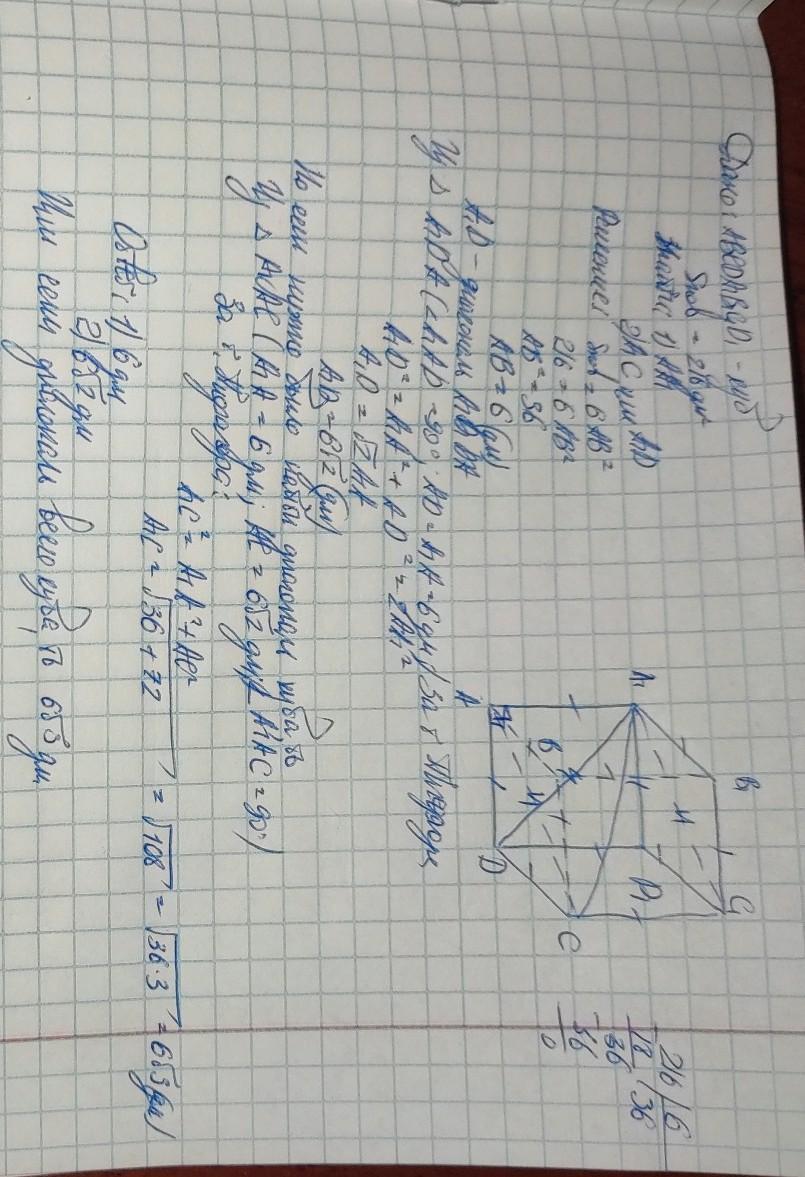 Дано: ABCDA₁B₁C₁D₁ - куб
Sпов = 216 дм²
Знайти: 1) AA₁
2) A₁C или A₁D
Решение: Sпов = 6AB²
216 = 6AB²
AB² = 36
AB = 6 (дм)
A₁D - диагональ
Из Δ A₁DA (∠A₁AD = 90°; AD = A₁A = 6 дм) За т. Пифагора
A₁D² = A₁A² + AD² = 2AA₁²
A₁D = √2 AA₁
A₁D = 6√2 (дм)
Но если нужно было найти диагональ куба, то
Из Δ A₁AC (A₁A = 6 дм; AC = 6√2 дм; ∠A₁AC = 90°)
За т. Пифагора:
A₁C² = A₁A² + AC²
A₁C = √36 + 72 = √108 = √36·3 = 6√3 (дм)
Ответ: 1) 6 дм
2) 6√2 дм
Или если диагональ всего куба, то 6√3 дм
A₁
B₁
C₁
D₁
A
B
C
D
216 | 6
18 | 36
36
-36
0